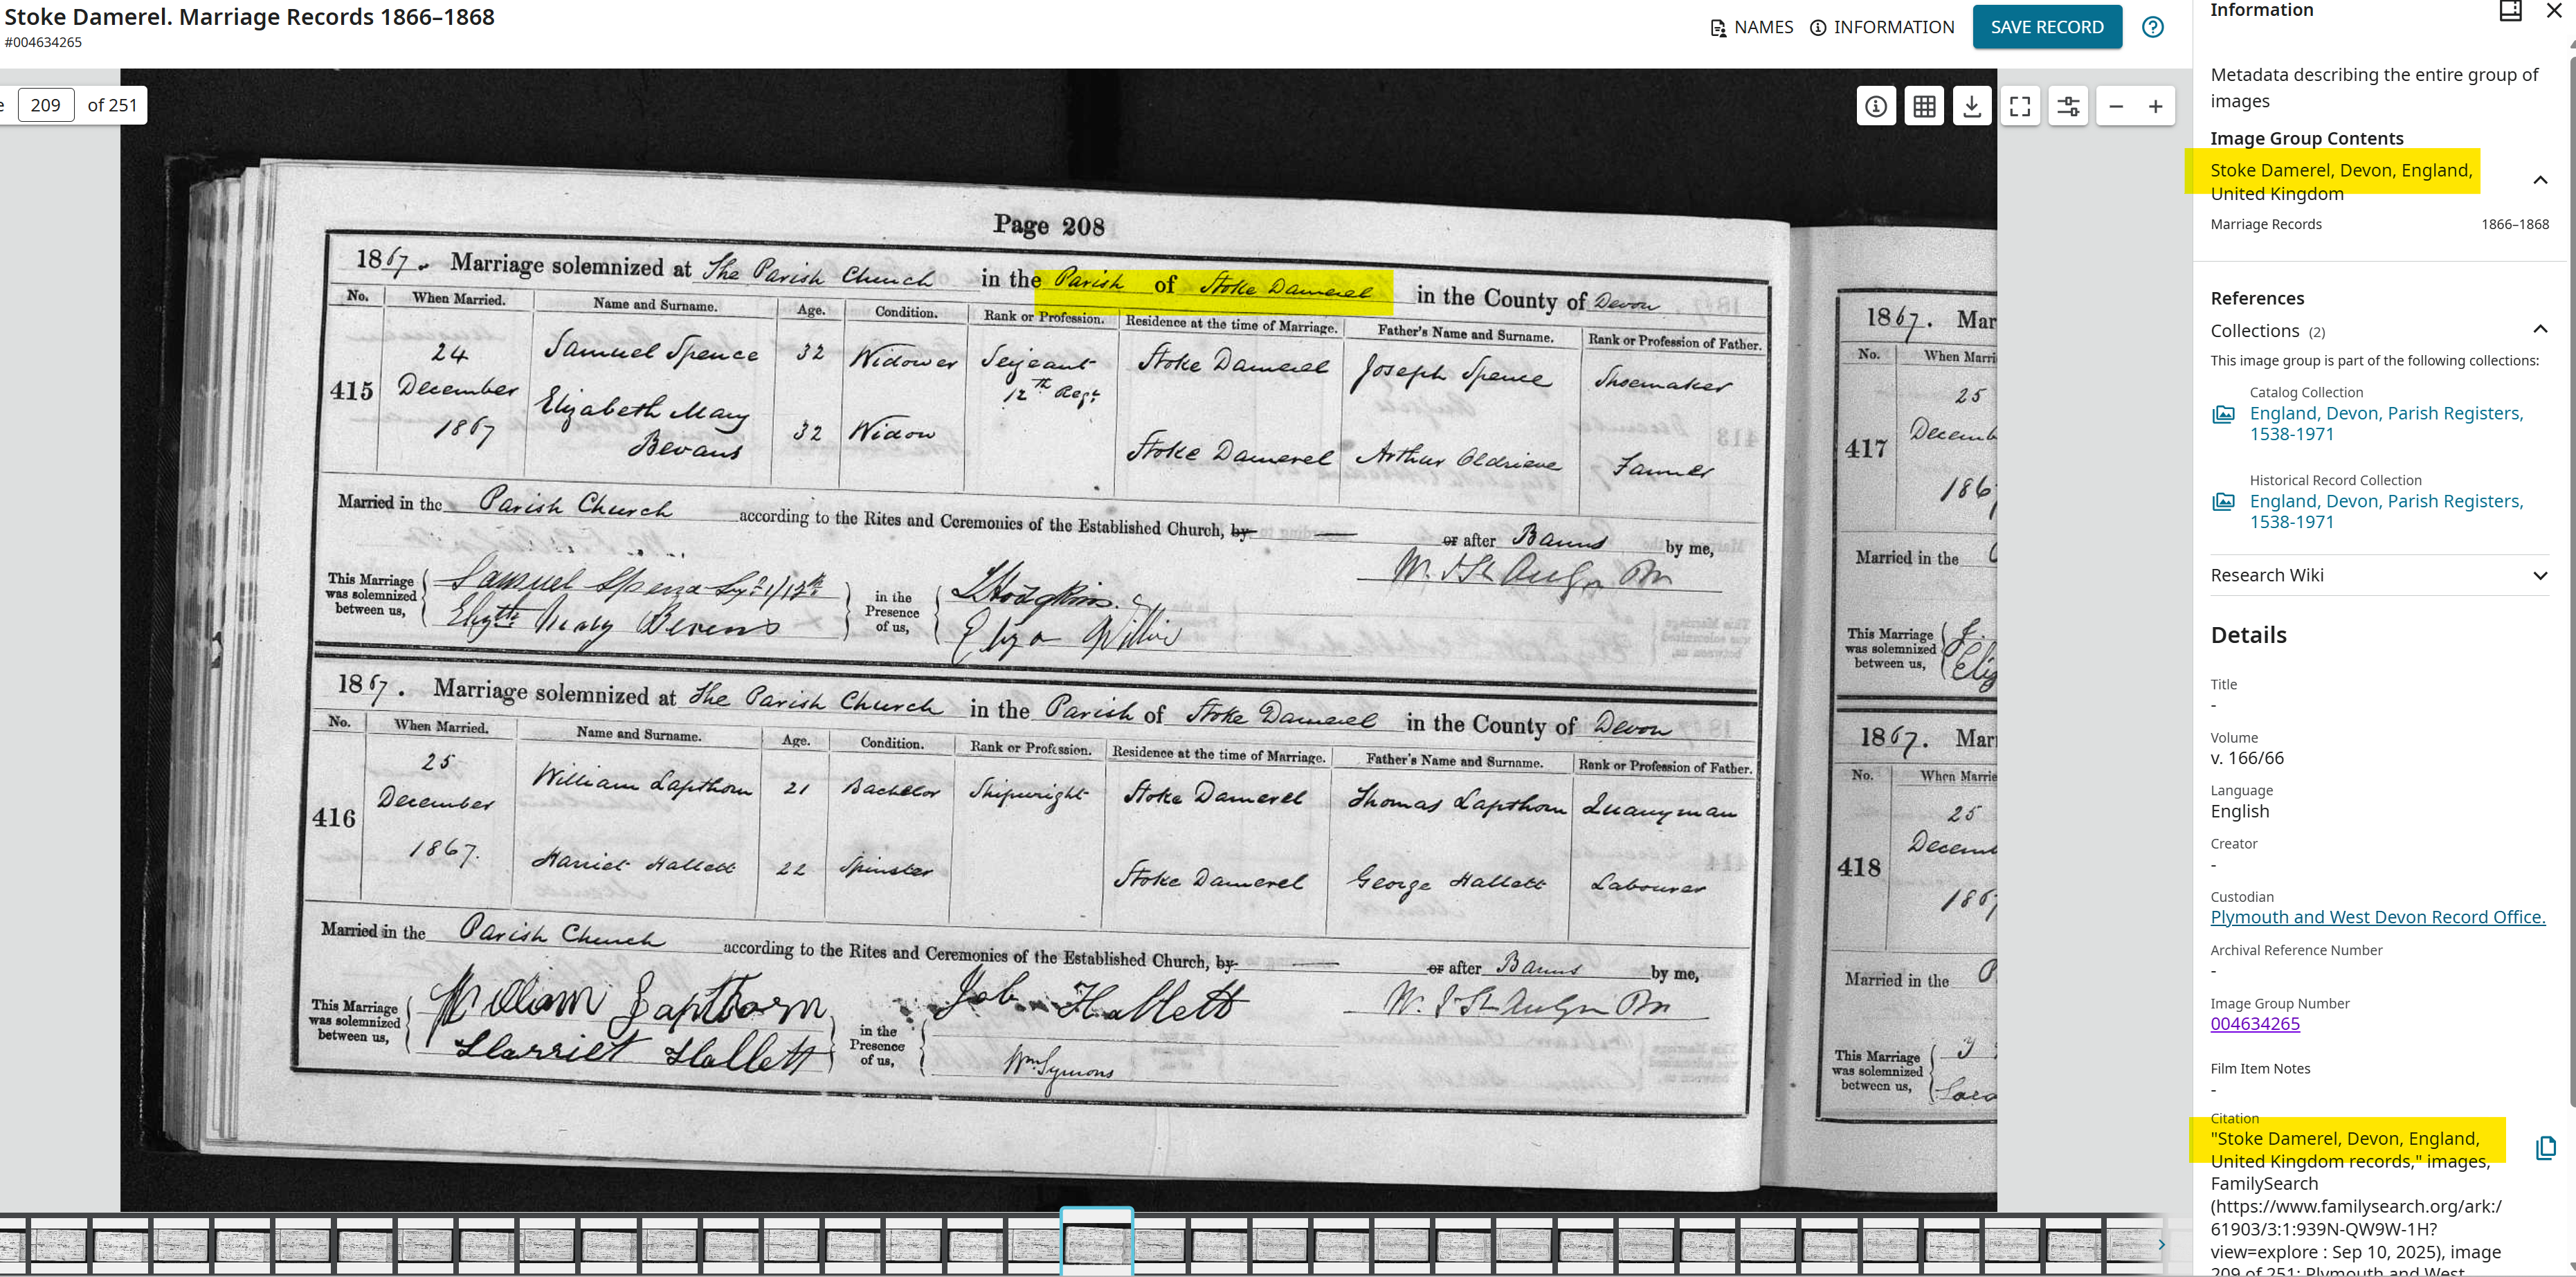 Stoke Damerel. Marriage Records 1866–1868
#004634265
NAMES
INFORMATION
SAVE RECORD
209 of 251
Page 208
1867. Marriage solemnized at The Parish Church in the Parish of Stoke Damerel in the County of Devon
No. When Married. Name and Surname. Age. Condition. Rank or Profession. Residence at the time of Marriage. Father's Name and Surname. Rank or Profession of Father.
415 24 December 1867 Samuel Spence 32 Widower Serjeant 12th Regt Stoke Damerel Joseph Spence Shoemaker
Elizabeth Mary Bevans 32 Widow Stoke Damerel Arthur Oldrieve Farmer
Married in the Parish Church according to the Rites and Ceremonies of the Established Church, by — or after Banns by me,
This Marriage was solemnized between us, Samuel Spence
Elizth Mary Bevens
in the Presence of us, Hodgkins
Eliza Willis
1867. Marriage solemnized at The Parish Church in the Parish of Stoke Damerel in the County of Devon
No. When Married. Name and Surname. Age. Condition. Rank or Profession. Residence at the time of Marriage. Father's Name and Surname. Rank or Profession of Father.
416 25 December 1867. William Lapthorn 21 Bachelor Shipwright Stoke Damerel Thomas Lapthorn Quarryman
Harriet Hallett 22 Spinster Stoke Damerel George Hallett Labourer
Married in the Parish Church according to the Rites and Ceremonies of the Established Church, by — or after Banns by me,
This Marriage was solemnized between us, William Lapthorn
Harriet Hallett
in the Presence of us, Job Hallett
Wm Symons
1867. Mar
No. When Marri
417 25
Decemb
186
Married in the
This Marriage was solemnized between us,
1867. Mar
No. When Marrie
418 25
Decemb
186
Married in the
This Marriage was solemnized between us,
Information
Metadata describing the entire group of
images
Image Group Contents
Stoke Damerel, Devon, England,
United Kingdom
Marriage Records 1866–1868
References
Collections (2)
This image group is part of the following collections:
Catalog Collection
England, Devon, Parish Registers,
1538-1971
Historical Record Collection
England, Devon, Parish Registers,
1538-1971
Research Wiki
Details
Title
-
Volume
v. 166/66
Language
English
Creator
-
Custodian
Plymouth and West Devon Record Office.
Archival Reference Number
-
Image Group Number
004634265
Film Item Notes
-
Citation
"Stoke Damerel, Devon, England,
United Kingdom records," images,
FamilySearch
(https://www.familysearch.org/ark:/
61903/3:1:939N-QW9W-1H?
view=explore : Sep 10, 2025), image
209 of 251; Plymouth and West